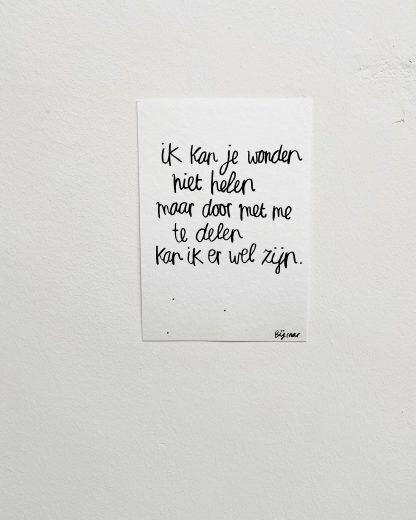 ik kan je wonden
niet helen
maar door met me
te delen
kan ik er wel zijn.